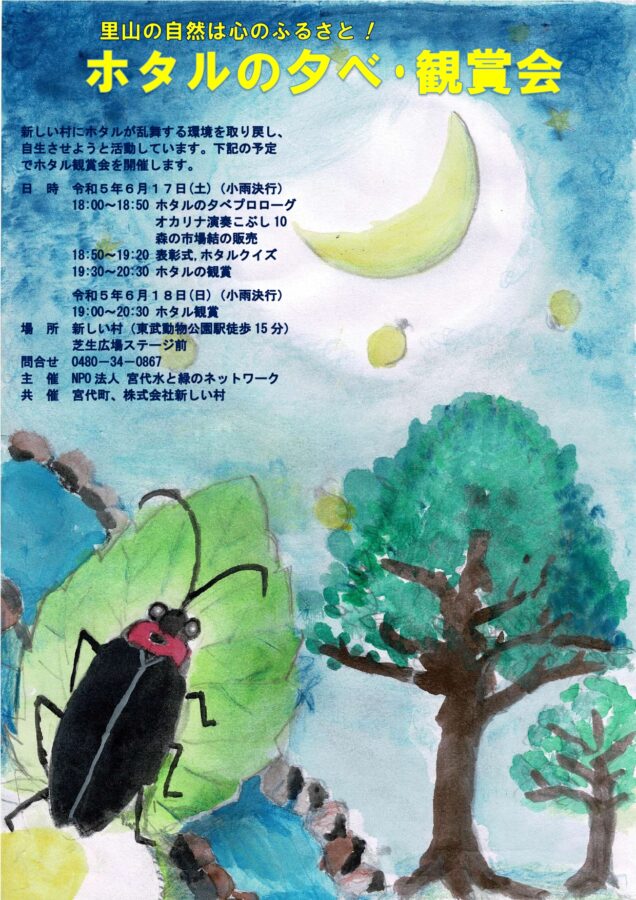 里山の自然は心のふるさと！
ホタルの夕べ・観賞会
新しい村にホタルが乱舞する環境を取り戻し、
自生させようと活動しています。下記の予定
でホタル観賞会を開催します。
日　時　令和５年６月１７日(土)（小雨決行）
18:00～18:50 ホタルの夕べプロローグ
オカリナ演奏こぶし10
森の市場結の販売
18:50～19:20 表彰式,ホタルクイズ
19:30～20:30 ホタルの観賞
令和５年６月１８日(日)（小雨決行）
19:00～20:30 ホタル観賞
場　所　新しい村（東武動物公園駅徒歩15分）
芝生広場ステージ前
問合せ　0480－34－0867
主　催　NPO法人 宮代水と緑のネットワーク
共　催　宮代町、株式会社新しい村